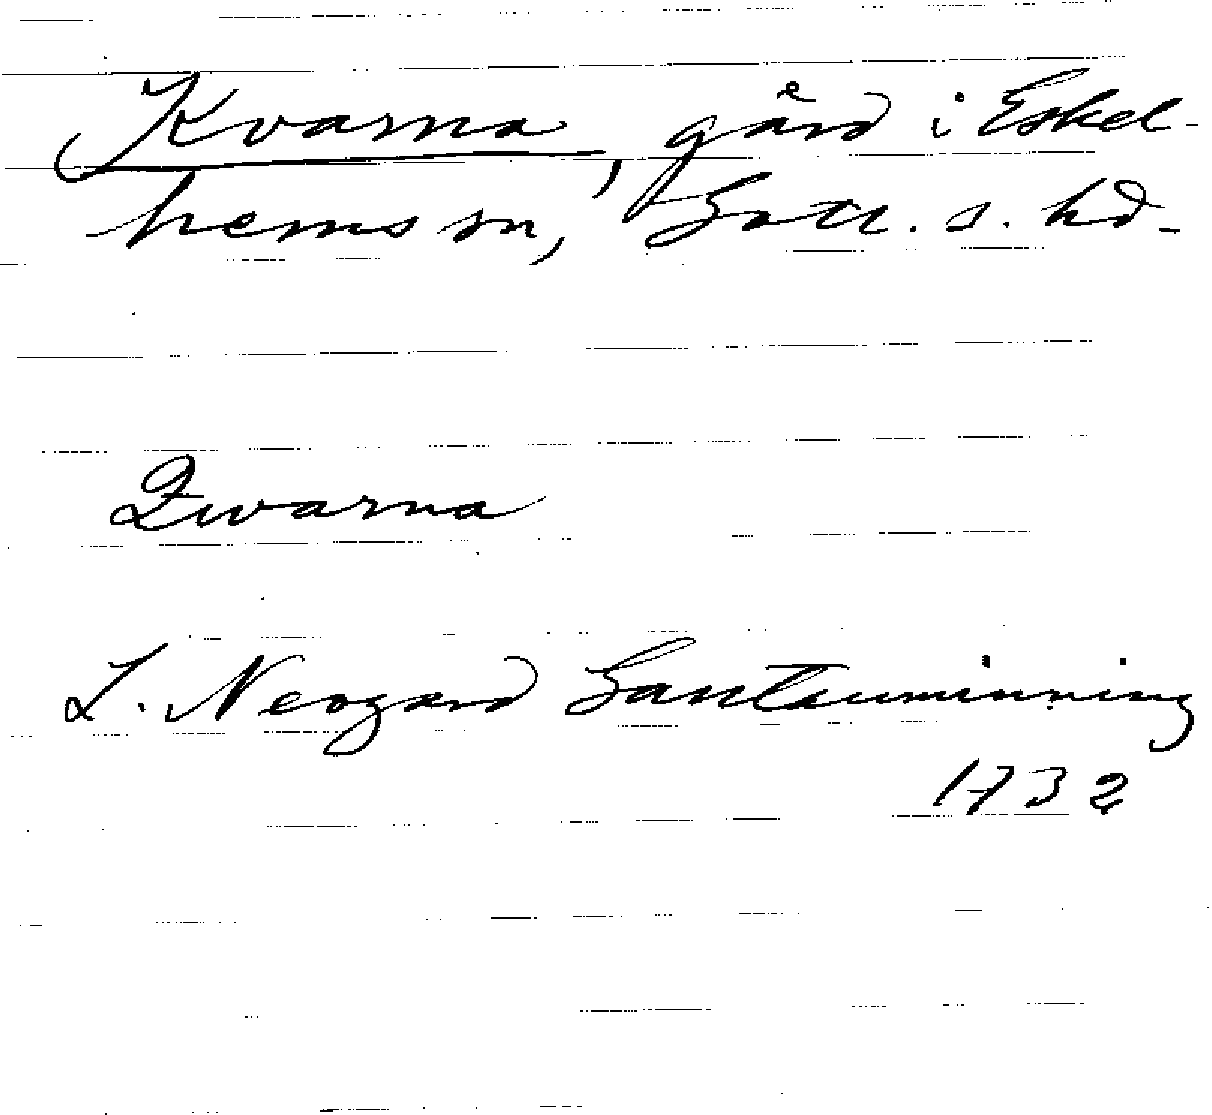 Kvarna, gård i Eskel-
hems sn, Gotl. s. hd.
Qwarna
L. Neogard Gautauminning
1732